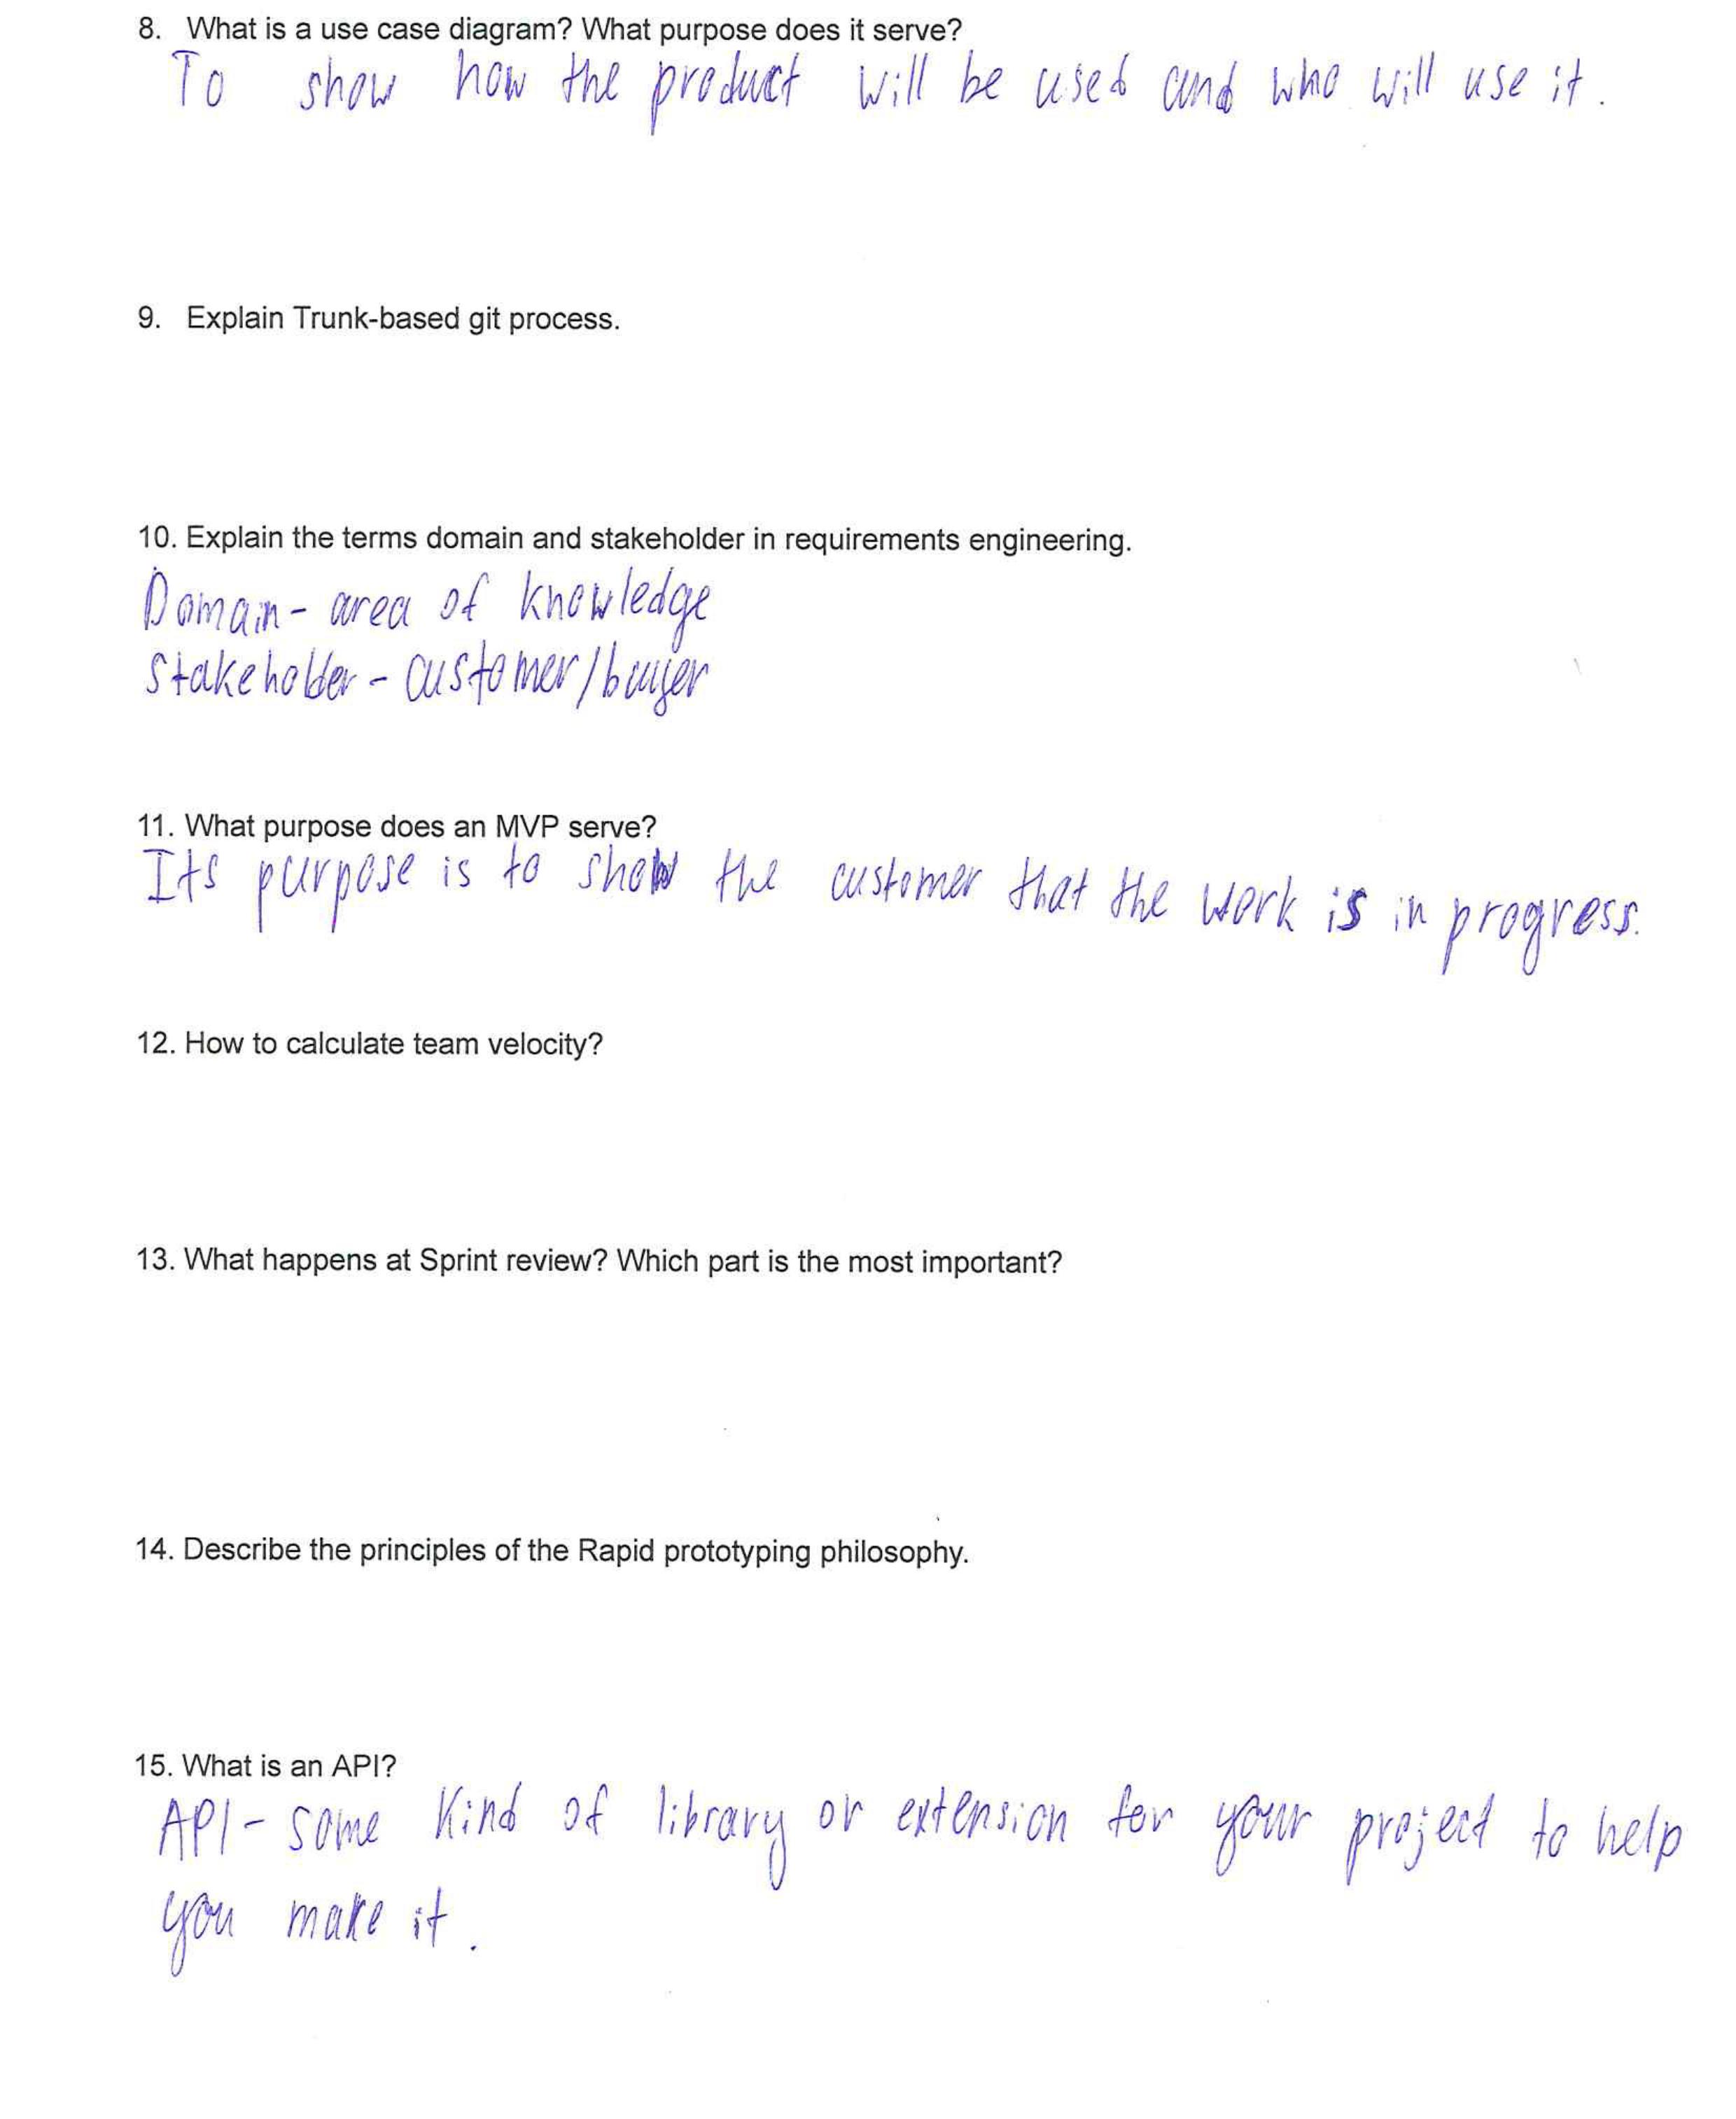 8. What is a use case diagram? What purpose does it serve?
To show how the product will be used and who will use it.
9. Explain Trunk-based git process.
10. Explain the terms domain and stakeholder in requirements engineering.
Domain - area of knowledge
Stakeholder - customer/buyer
11. What purpose does an MVP serve?
Its purpose is to show the customer that the work is in progress.
12. How to calculate team velocity?
13. What happens at Sprint review? Which part is the most important?
14. Describe the principles of the Rapid prototyping philosophy.
15. What is an API?
API - some kind of library or extension for your project to help
you make it.